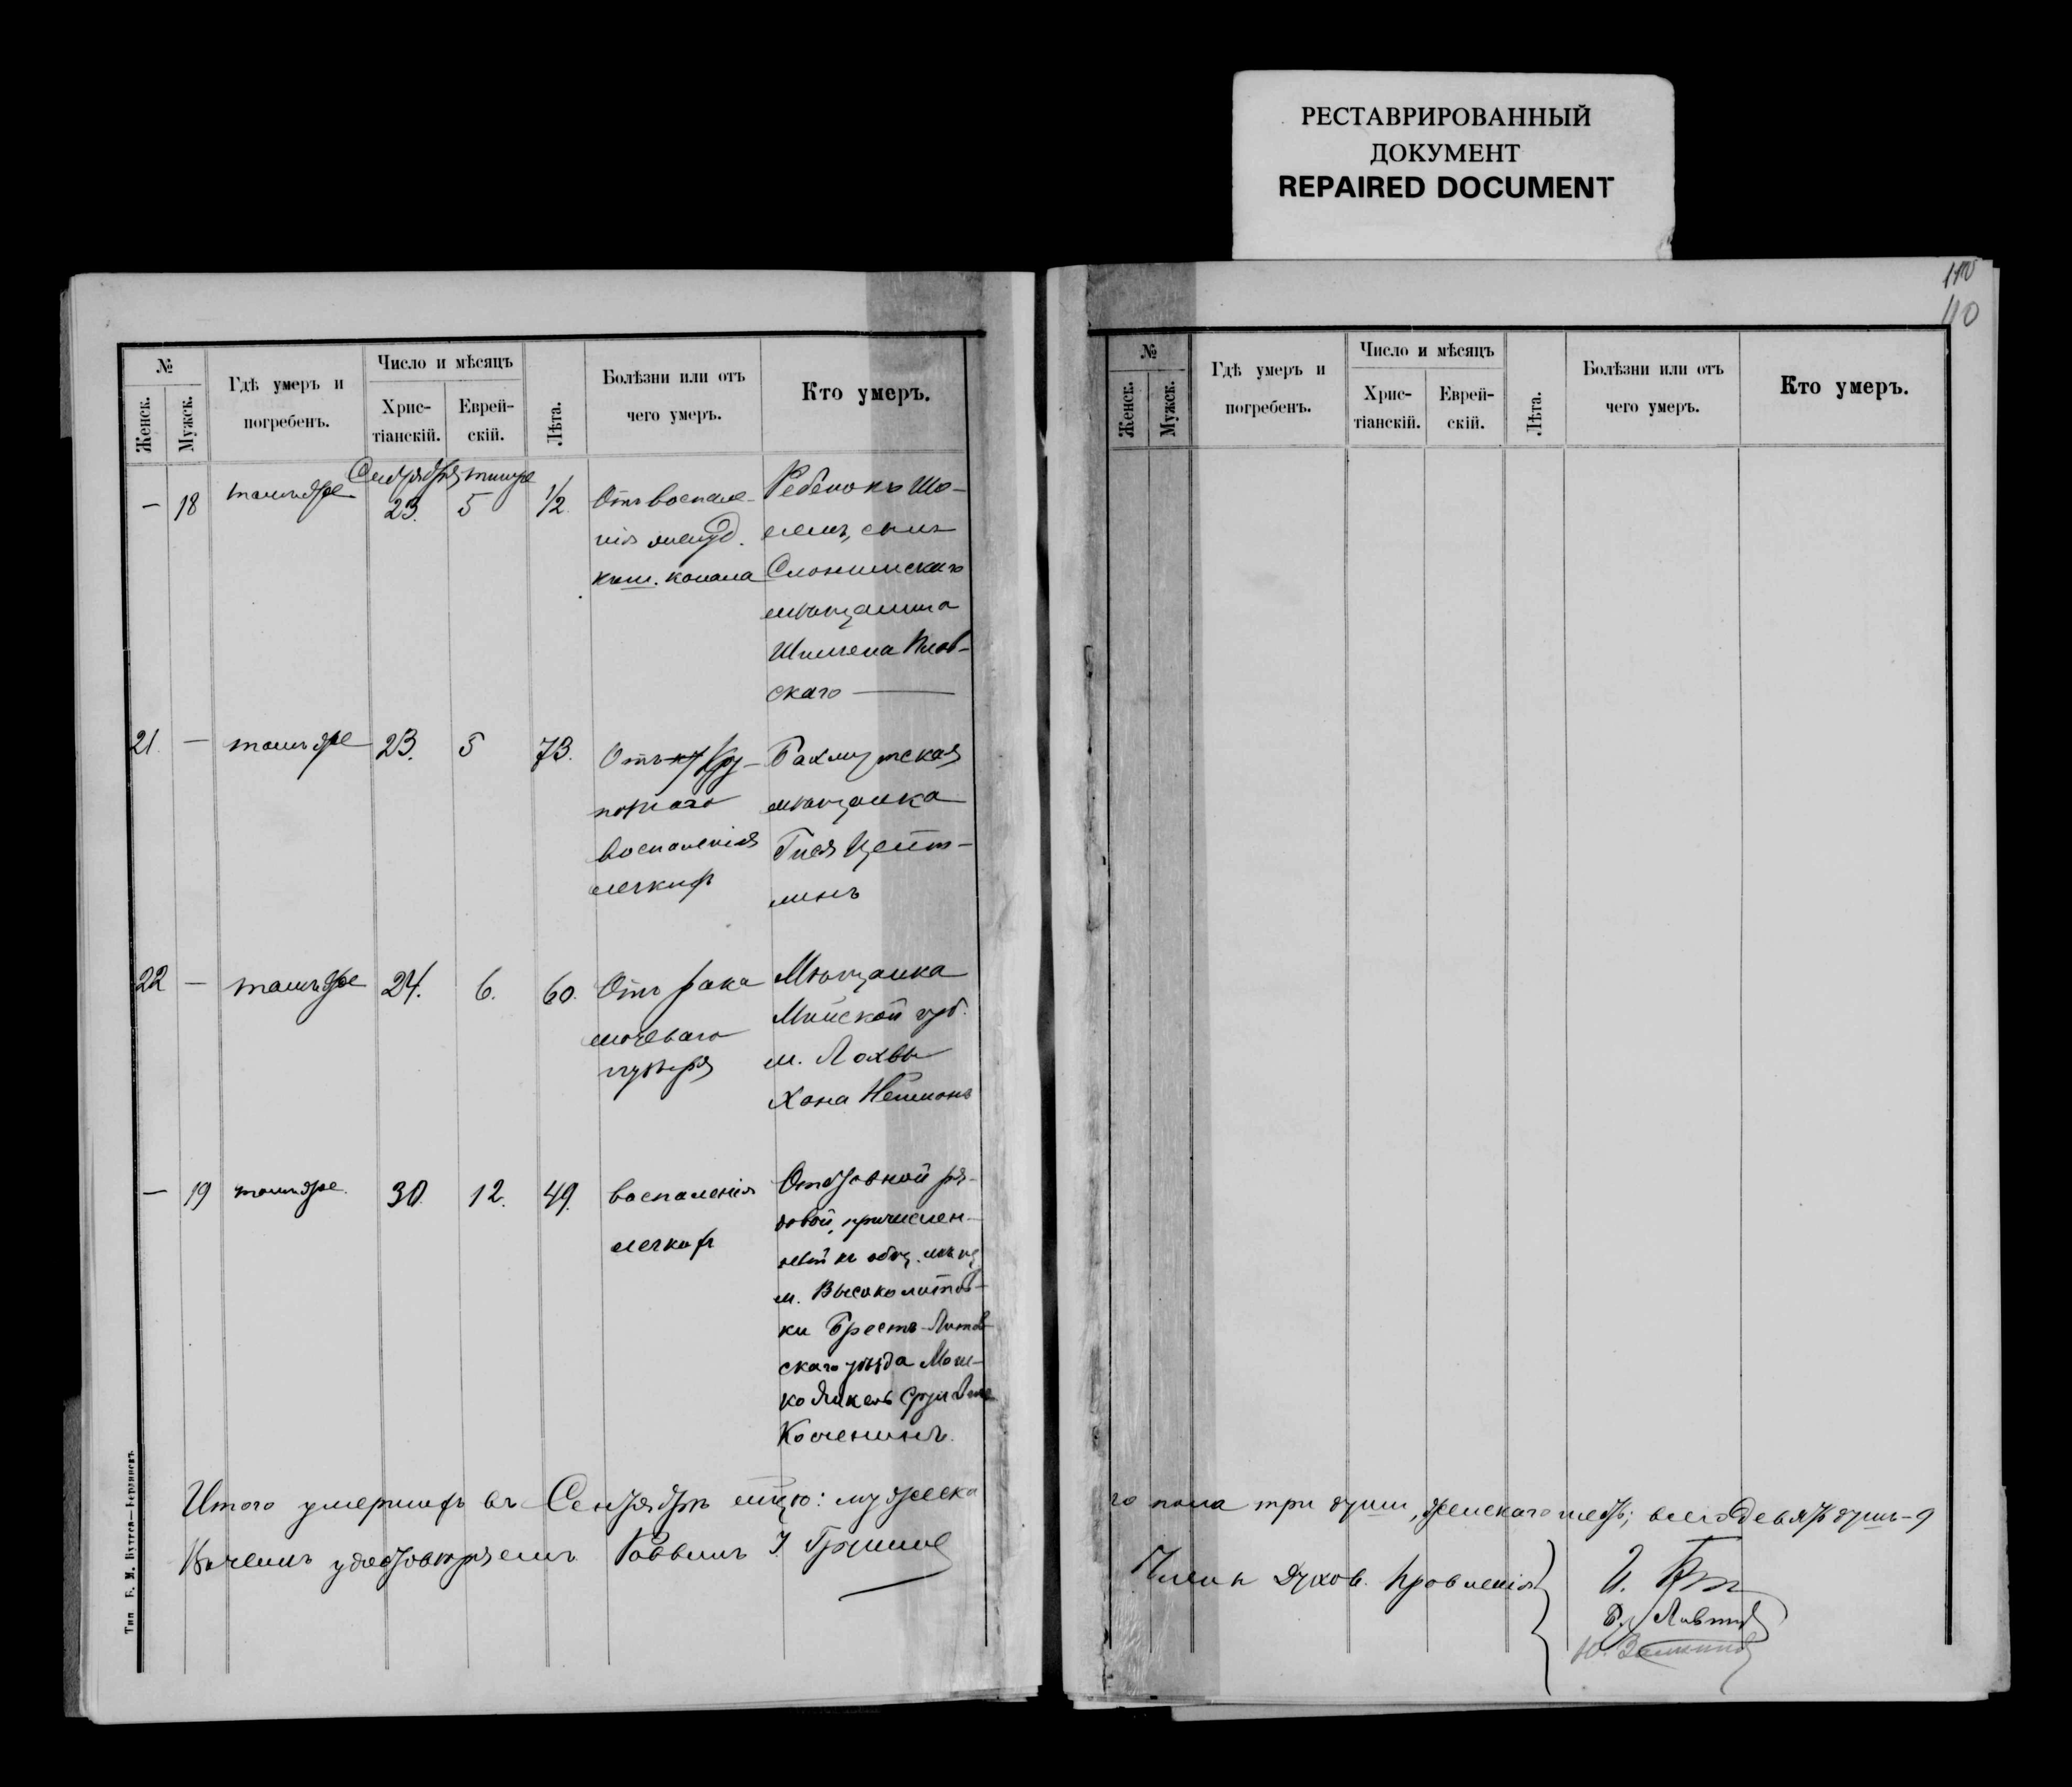 РЕСТАВРИРОВАННЫЙ
ДОКУМЕНТ
REPAIRED DOCUMENT
110
110
№
Женск.
Мужск.
Гдѣ умеръ и
погребенъ.
Число и мѣсяцъ
Хрис-
тіанскій.
Еврей-
скій.
Лѣта.
Болѣзни или отъ
чего умеръ.
Кто умеръ.
Сентября тишре
— 18 тамъ же 23. 5 1/2
Отъ воспале-
нія желуд.
киш. канала
Ребенокъ Шо-
сынъ
Слонимскаго
мѣщанина
скаго
21. — тамъ же 23. 5 73.
Отъ Кру-
познаго
воспаленія
легкихъ
Бахмутская
мѣщанка
Гися Цейт-
линъ
22 — тамъ же 24. 6. 60.
Отъ рака
мочеваго
пузыря
Мѣщанка
Минской губ.
м. Лахвы
Хана Нейманъ
— 19 тамъ же. 30. 12. 49.
воспаленія
легкихъ
Отставной ря-
довой, причислен-
ный къ общ. мѣщ
м. Высоколитов-
ки Брестъ-Литов
скаго уѣзда Мош-
ко
Итого умершихъ въ Сентябрѣ мцѣ: мужеска
го пола три души, женскаго шесть; всего девять душъ — 9
В чемъ удостовѣряемъ Раввинъ
Члены Духов. Правленія
Тип. Б. М.
№
Женск.
Мужск.
Гдѣ умеръ и
погребенъ.
Число и мѣсяцъ
Хрис-
тіанскій.
Еврей-
скій.
Лѣта.
Болѣзни или отъ
чего умеръ.
Кто умеръ.